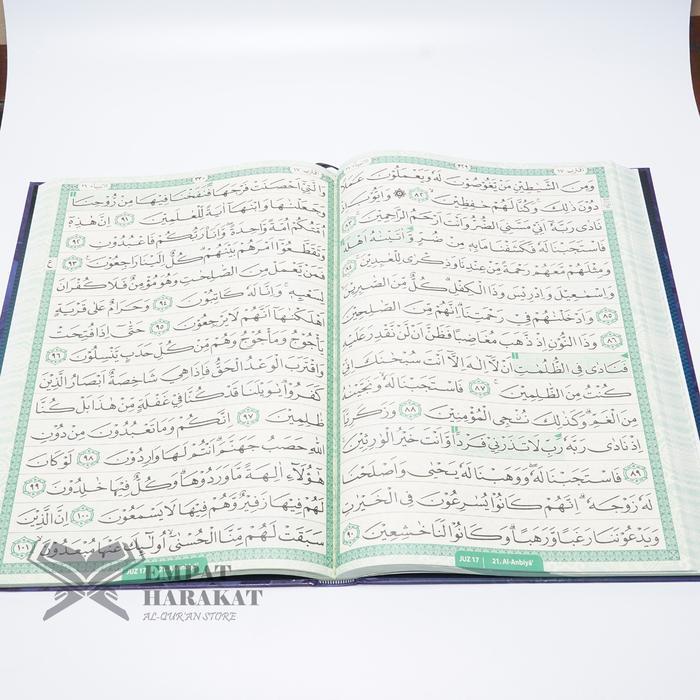 وَمِنَ الشَّيٰطِيْنِ مَنْ يَّغُوْصُوْنَ لَهٗ وَيَعْمَلُوْنَ عَمَلًا
دُوْنَ ذٰلِكَۚ وَكُنَّا لَهُمْ حٰفِظِيْنَ ۙ ٨٢ ۞ وَاَيُّوْبَ
نَادٰى رَبَّهٗٓ اَنِّيْ مَسَّنِيَ الضُّرُّ وَاَنْتَ اَرْحَمُ الرَّاحِمِيْنَ
فَاسْتَجَبْنَا لَهٗ فَكَشَفْنَا مَا بِهٖ مِنْ ضُرٍّ وَّاٰتَيْنٰهُ اَهْلَهٗ
وَمِثْلَهُمْ مَّعَهُمْ رَحْمَةً مِّنْ عِنْدِنَا وَذِكْرٰى لِلْعٰبِدِيْنَ
وَاِسْمٰعِيْلَ وَاِدْرِيْسَ وَذَا الْكِفْلِۗ كُلٌّ مِّنَ الصّٰبِرِيْنَ
٨٥ وَاَدْخَلْنٰهُمْ فِيْ رَحْمَتِنَاۗ اِنَّهُمْ مِّنَ الصّٰلِحِيْنَ
٨٦ وَذَا النُّوْنِ اِذْ ذَّهَبَ مُغَاضِبًا فَظَنَّ اَنْ لَّنْ نَّقْدِرَ عَلَيْهِ
فَنَادٰى فِى الظُّلُمٰتِ اَنْ لَّآ اِلٰهَ اِلَّآ اَنْتَ سُبْحٰنَكَ اِنِّيْ
كُنْتُ مِنَ الظّٰلِمِيْنَ ۚ ٨٧ فَاسْتَجَبْنَا لَهٗۙ وَنَجَّيْنٰهُ
مِنَ الْغَمِّۗ وَكَذٰلِكَ نُنْجِى الْمُؤْمِنِيْنَ ٨٨ وَزَكَرِيَّآ
اِذْ نَادٰى رَبَّهٗ رَبِّ لَا تَذَرْنِيْ فَرْدًا وَّاَنْتَ خَيْرُ الْوٰرِثِيْنَ
٨٩ فَاسْتَجَبْنَا لَهٗ ۖوَوَهَبْنَا لَهٗ يَحْيٰى وَاَصْلَحْنَا
لَهٗ زَوْجَهٗۗ اِنَّهُمْ كَانُوْا يُسٰرِعُوْنَ فِى الْخَيْرٰتِ
وَيَدْعُوْنَنَا رَغَبًا وَّرَهَبًاۗ وَكَانُوْا لَنَا خٰشِعِيْنَ ٩٠
JUZ 17 21. Al-Anbiyā'
وَالَّتِيْٓ اَحْصَنَتْ فَرْجَهَا فَنَفَخْنَا فِيْهَا مِنْ رُّوْحِنَا
وَجَعَلْنٰهَا وَابْنَهَآ اٰيَةً لِّلْعٰلَمِيْنَ ٩١ اِنَّ هٰذِهٖٓ
اُمَّتُكُمْ اُمَّةً وَّاحِدَةًۖ وَّاَنَا۠ رَبُّكُمْ فَاعْبُدُوْنِ ٩٢
وَتَقَطَّعُوْٓا اَمْرَهُمْ بَيْنَهُمْۗ كُلٌّ اِلَيْنَا رٰجِعُوْنَ ٩٣
فَمَنْ يَّعْمَلْ مِنَ الصّٰلِحٰتِ وَهُوَ مُؤْمِنٌ فَلَا كُفْرَانَ
لِسَعْيِهٖۚ وَاِنَّا لَهٗ كَاتِبُوْنَ ٩٤ وَحَرَامٌ عَلٰى قَرْيَةٍ
اَهْلَكْنٰهَآ اَنَّهُمْ لَا يَرْجِعُوْنَ ٩٥ حَتّٰىٓ اِذَا فُتِحَتْ
يَأْجُوْجُ وَمَأْجُوْجُ وَهُمْ مِّنْ كُلِّ حَدَبٍ يَّنْسِلُوْنَ ٩٦
وَاقْتَرَبَ الْوَعْدُ الْحَقُّ فَاِذَا هِيَ شَاخِصَةٌ اَبْصَارُ الَّذِيْنَ
كَفَرُوْاۗ يٰوَيْلَنَا قَدْ كُنَّا فِيْ غَفْلَةٍ مِّنْ هٰذَا بَلْ كُنَّا
ظٰلِمِيْنَ ٩٧ اِنَّكُمْ وَمَا تَعْبُدُوْنَ مِنْ دُوْنِ
اللّٰهِ حَصَبُ جَهَنَّمَۗ اَنْتُمْ لَهَا وَارِدُوْنَ ٩٨ لَوْ كَانَ
هٰٓؤُلَاۤءِ اٰلِهَةً مَّا وَرَدُوْهَاۗ وَكُلٌّ فِيْهَا خٰلِدُوْنَ ٩٩
لَهُمْ فِيْهَا زَفِيْرٌ وَّهُمْ فِيْهَا لَا يَسْمَعُوْنَ ١٠٠ اِنَّ الَّذِيْنَ
سَبَقَتْ لَهُمْ مِّنَّا الْحُسْنٰىٓۙ اُولٰۤىِٕكَ عَنْهَا مُبْعَدُوْنَ ۙ ١٠١
JUZ 17
EMPAT
HARAKAT
AL-QUR'AN STORE